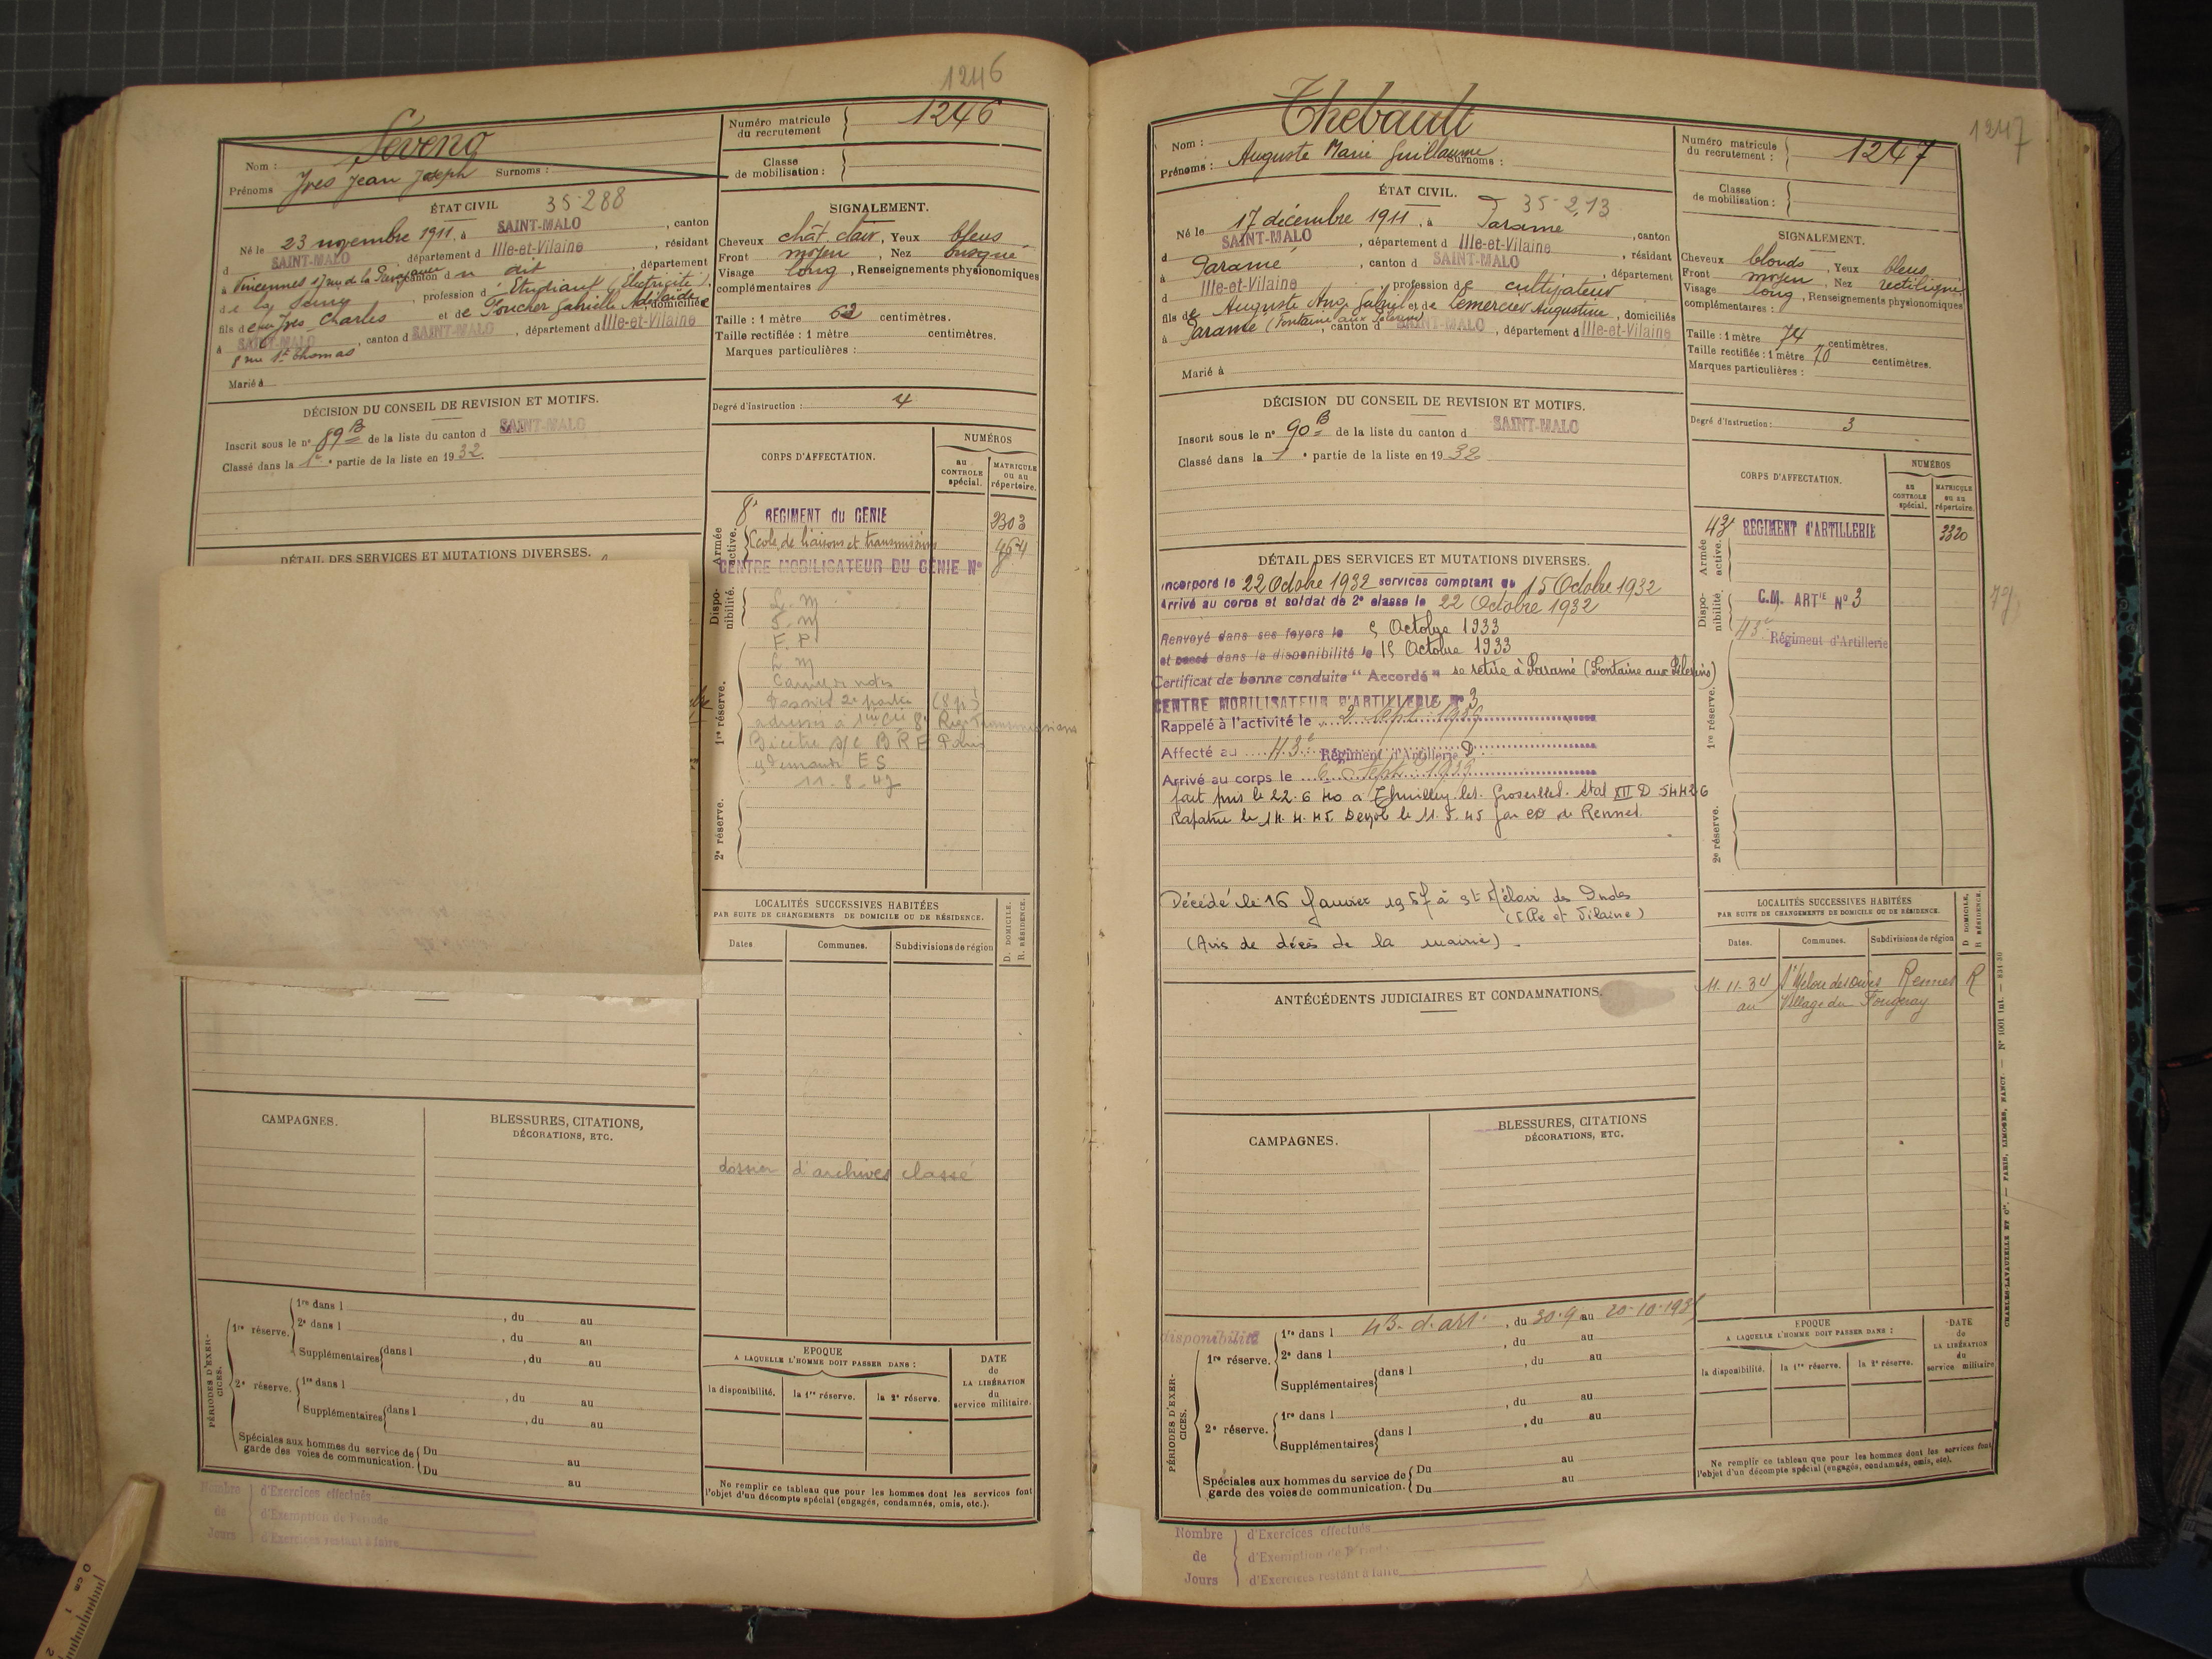 1246
Séveno
Nom :
Prénoms Yves Jean Joseph Surnoms :
Numéro matricule du recrutement 1246
Classe de mobilisation :
ÉTAT CIVIL 35-288
Né le 23 novembre 1911, à SAINT-MALO, canton
d SAINT-MALO, département d Ille-et-Vilaine, résidant
à Vincennes 17 rue de la canton d u dit, département
de la Seine, profession d' Etudiant (Electricité)
fils de feu Yves Charles et de Foucher Gabrielle Adélaïde domiciliés
à SAINT-MALO, canton d SAINT-MALO, département d Ille-et-Vilaine
8 rue St Thomas
Marié à
SIGNALEMENT.
Cheveux chât. clair, Yeux bleus
Front moyen, Nez busqué
Visage long, Renseignements physionomiques
complémentaires
Taille : 1 mètre 62 centimètres.
Taille rectifiée : 1 mètre centimètres.
Marques particulières :
Degré d'instruction : 4
DÉCISION DU CONSEIL DE REVISION ET MOTIFS.
Inscrit sous le nº 89 B de la liste du canton d SAINT-MALO
Classé dans la 1e partie de la liste en 1932.
DÉTAIL DES SERVICES ET MUTATIONS DIVERSES.
CORPS D'AFFECTATION.
NUMÉROS
au CONTROLE spécial.
MATRICULE ou au répertoire.
Armée active.
8e REGIMENT du GENIE 2303
Ecole de liaisons et transmissions 464
CENTRE MOBILISATEUR DU GENIE Nº
Disponibilité.
L. m
F. m
F. P
L. m
1re réserve.
Dossier 2e partie (8 p)
adresses à 1ère Cie 8e Regt Transmissions
Bicêtre s/c B R E Paris
s/ Demande E S
11-8-47
2e réserve.
LOCALITÉS SUCCESSIVES HABITÉES
PAR SUITE DE CHANGEMENTS DE DOMICILE OU DE RÉSIDENCE.
D. DOMICILE. R. RÉSIDENCE.
Dates Communes. Subdivisions de région
dossier d'archives classé
CAMPAGNES.
BLESSURES, CITATIONS, DÉCORATIONS, ETC.
PÉRIODES D'EXERCICES.
1re réserve. 1re dans l , du au
2e dans l , du au
Supplémentaires dans l , du au
2e réserve. 1re dans l , du au
Supplémentaires dans l , du au
Spéciales aux hommes du service de garde des voies de communication. Du au
Du au
EPOQUE
A LAQUELLE L'HOMME DOIT PASSER DANS :
la disponibilité. la 1re réserve. la 2e réserve.
DATE de LA LIBÉRATION du service militaire.
Ne remplir ce tableau que pour les hommes dont les services font
l'objet d'un décompte spécial (engagés, condamnés, omis, etc.).
Nombre de Jours
d'Exercices effectués
d'Exemption de Période
d'Exercices restant à faire
1247
Thebault
Nom :
Prénoms : Auguste Marie Guillaume Surnoms :
Numéro matricule du recrutement : 1247
Classe de mobilisation :
ÉTAT CIVIL. 35-2,13
Né le 17 décembre 1911, à Paramé, canton
d SAINT-MALO, département d Ille-et-Vilaine, résidant
à Paramé, canton d SAINT-MALO, département
d Ille-et-Vilaine, profession de cultivateur
fils de Auguste Ang. Gabriel et de Lemercier Augustine, domiciliés
à Paramé (Fontaine aux Pèlerins), canton d SAINT-MALO, département d Ille-et-Vilaine
Marié à
SIGNALEMENT.
Cheveux blonds, Yeux bleus
Front moyen, Nez rectiligne
Visage long, Renseignements physionomiques
complémentaires :
Taille : 1 mètre 74 centimètres.
Taille rectifiée : 1 mètre 70 centimètres.
Marques particulières :
Degré d'instruction : 3
DÉCISION DU CONSEIL DE REVISION ET MOTIFS.
Inscrit sous le nº 90 B de la liste du canton d SAINT-MALO
Classé dans la 1e partie de la liste en 1932
DÉTAIL DES SERVICES ET MUTATIONS DIVERSES.
Incorporé le 22 Octobre 1932 services comptant du 15 Octobre 1932
Arrivé au corps et soldat de 2e classe le 22 Octobre 1932
Renvoyé dans ses foyers le 5 Octobre 1933
et passé dans la disponibilité le 15 Octobre 1933
Certificat de bonne conduite "Accordé" se retire à Paramé (Fontaine aux Pèlerins)
CENTRE MOBILISATEUR D'ARTILLERIE Nº 3
Rappelé à l'activité le 2 Sept 1939
Affecté au 43e Régiment d'Artillerie D
Arrivé au corps le 6 Sept 1939
fait pris le 22.6 40 a Thuilley les Groseilles. Stal XII D 54426
Rapatrié le 14.4.45. Demob le 11.5.45 par CD de Rennes.
Décédé le 16 Janvier 1957 à St Méloir des Ondes
(Ille et Vilaine)
(Avis de décès de la mairie).
CORPS D'AFFECTATION.
NUMÉROS
au CONTROLE spécial.
MATRICULE ou au répertoire.
Armée active.
43e REGIMENT d'ARTILLERIE 3320
Disponibilité.
C.M. ARTie Nº 3
43e Régiment d'Artillerie
1re réserve.
2e réserve.
ANTÉCÉDENTS JUDICIAIRES ET CONDAMNATIONS.
LOCALITÉS SUCCESSIVES HABITÉES
PAR SUITE DE CHANGEMENTS DE DOMICILE OU DE RÉSIDENCE.
D DOMICILE, R RÉSIDENCE.
Dates. Communes. Subdivisions de région
11.11.34 St Méloir des Ondes Rennes R
au Village du
CAMPAGNES.
BLESSURES, CITATIONS DÉCORATIONS, ETC.
disponibilité
PÉRIODES D'EXERCICES.
1re réserve. 1re dans l 43e d'art. , du 30-9 au 20-10-193
2e dans l , du au
Supplémentaires dans l , du au
2e réserve. 1re dans l , du au
Supplémentaires dans l , du au
Spéciales aux hommes du service de garde des voies de communication. Du au
Du au
EPOQUE
A LAQUELLE L'HOMME DOIT PASSER DANS :
la disponibilité. la 1re réserve. la 2e réserve.
DATE de LA LIBÉRATION du service militaire
Ne remplir ce tableau que pour les hommes dont les services font
l'objet d'un décompte spécial (engagés, condamnés, omis, etc).
Nombre de Jours
d'Exercices effectués
d'Exemption de Période
d'Exercices restant à faire
CHARLES-LAVAUZELLE ET Cie. — PARIS, LIMOGES, NANCY. — Nº 1001 Int. — 831-30
0 cm 1 2